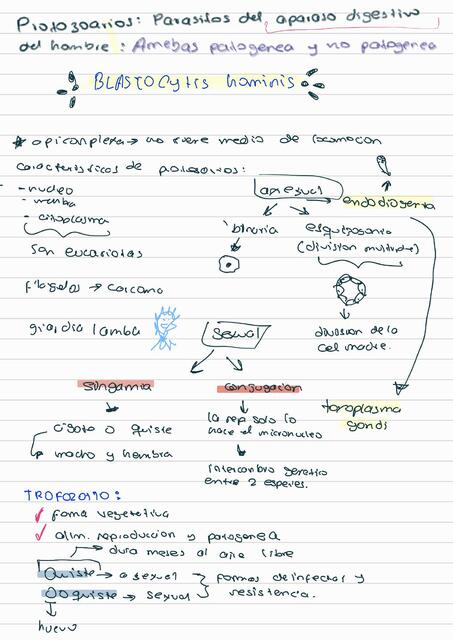 Protozoarios: Parasitos del aparato digestivo
del hombre: Amebas patogenea y no patogenea
BLASTOCYTIS hominis
* apicomplexa → no tiene medio de locomocion
características de protozoarios:
- nucleo
- memba
- citoplasma
son eucariotas
flagelos → corcomo
giardia lamba
asexual
endodiogenia
binaria
esquizogonia
(division multiple)
division de la
cel madre.
toxoplasma
gondi
sexual
Singamia
conjugacion
cigoto o quiste
macho y hembra
la rep solo lo
hace el micronucleo
intercambio genetico
entre 2 especies.
TROFOZOITO:
✓ foma vegetativa
✓ alim. reproducion y patogenea
dura meses al aire libre
Quiste → asexual
OOquiste → sexual
formas de infeccion y
resistencia.
huevo